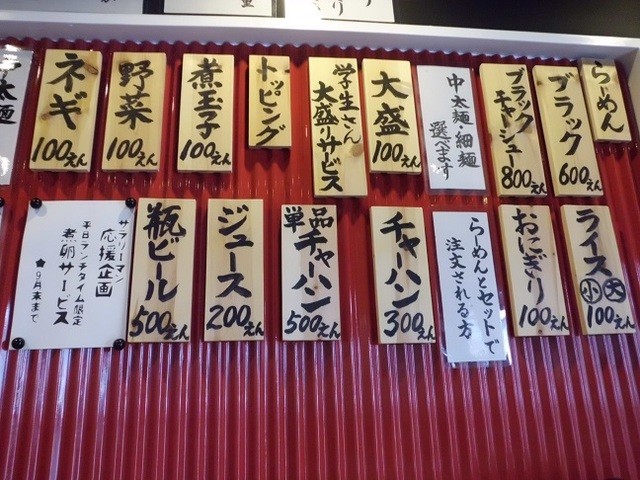 らーめん
ブラック
600えん
ブラック
チャーシュー
800えん
中太麺・細麺
選べます
大盛
100えん
学生さん
大盛りサービス
トッピング
煮玉子
100えん
野菜
100えん
ネギ
100えん
太麺
ライス
小
大
100えん
おにぎり
100えん
らーめんとセットで
注文される方
チャーハン
300えん
単品
チャーハン
500えん
ジュース
200えん
瓶ビール
500えん
サラリーマン
応援企画
平日ランチタイム限定
煮卵サービス
★9月末まで